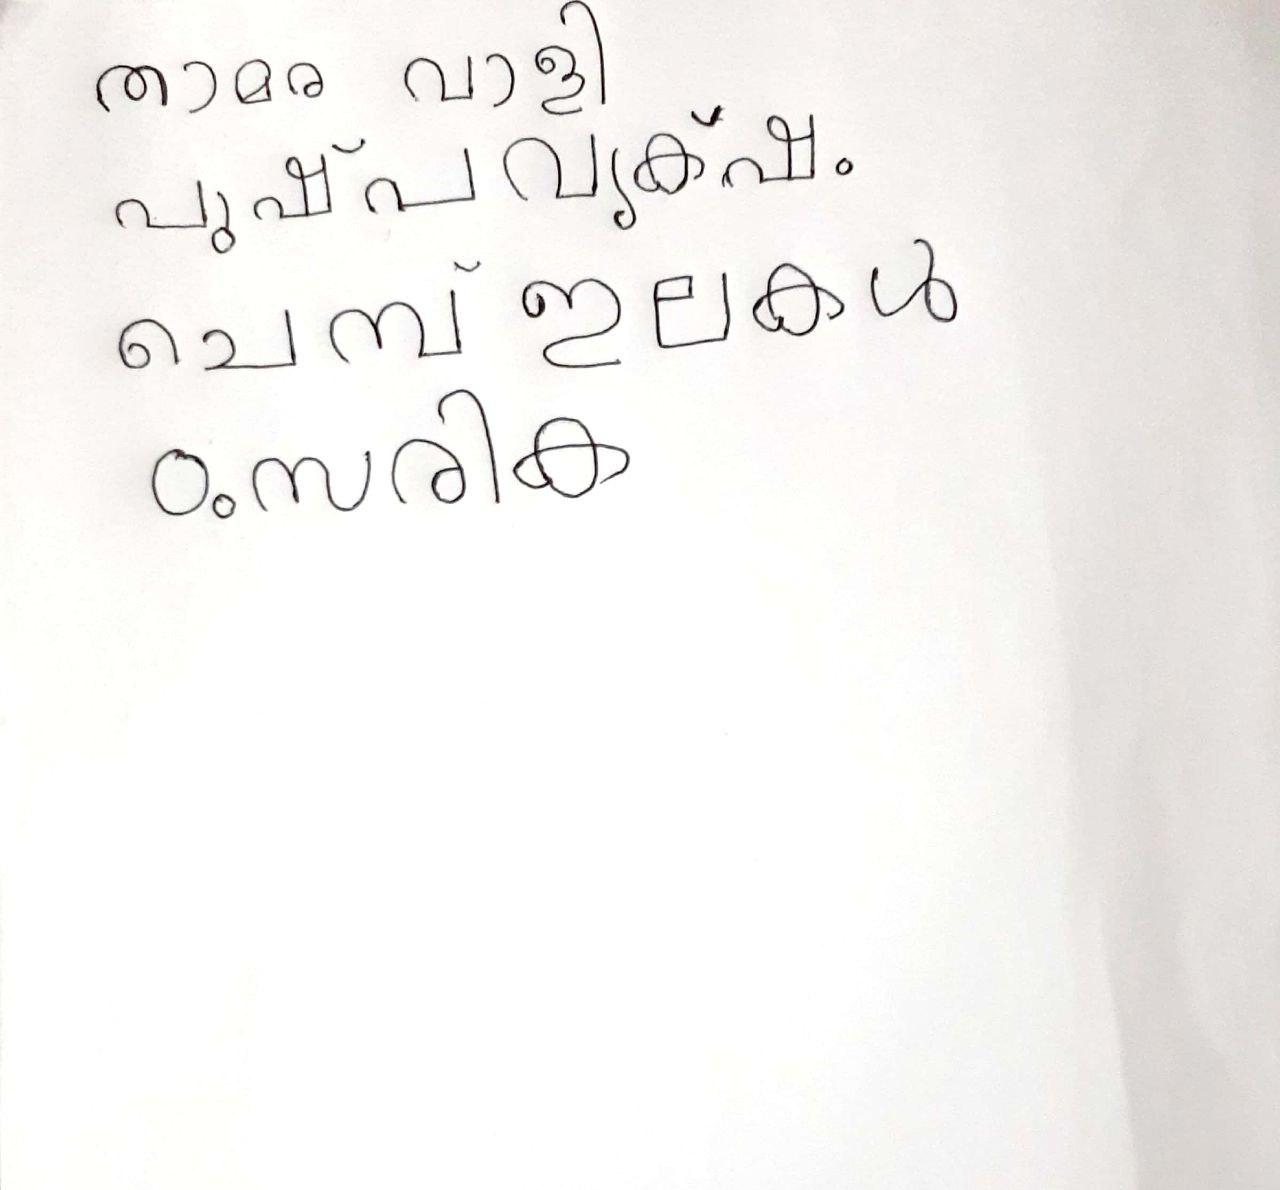 താമര വാളി
പുഷ്പ വൃക്ഷം
ചെമ്പ് ഇലകൾ
ഠംസരിക